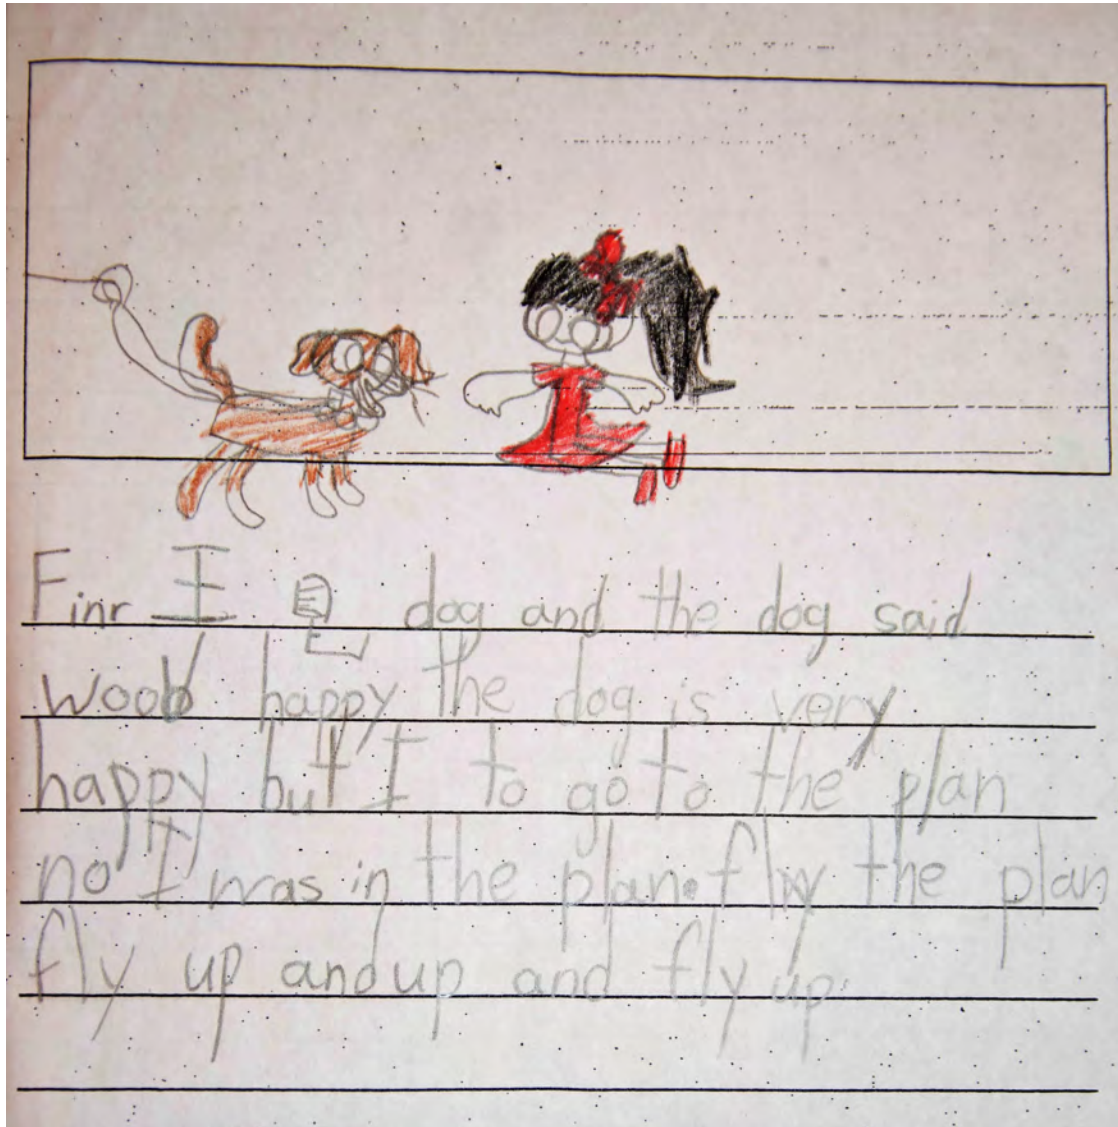 Finr I 见 dog and the dog said
woob happy the dog is very
happy but I to go to the plan
no I was in the plan. fly the plan
fly up and up and fly up.